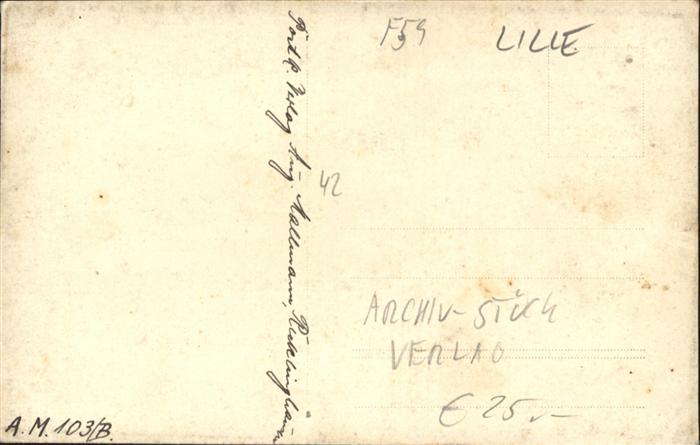 F59 LILLE
Postk. Verlag Aug. Mallmann, Recklinghausen
42
ARCHIV-STÜCK
VERLAG
€ 25,-
A.M. 103/B.